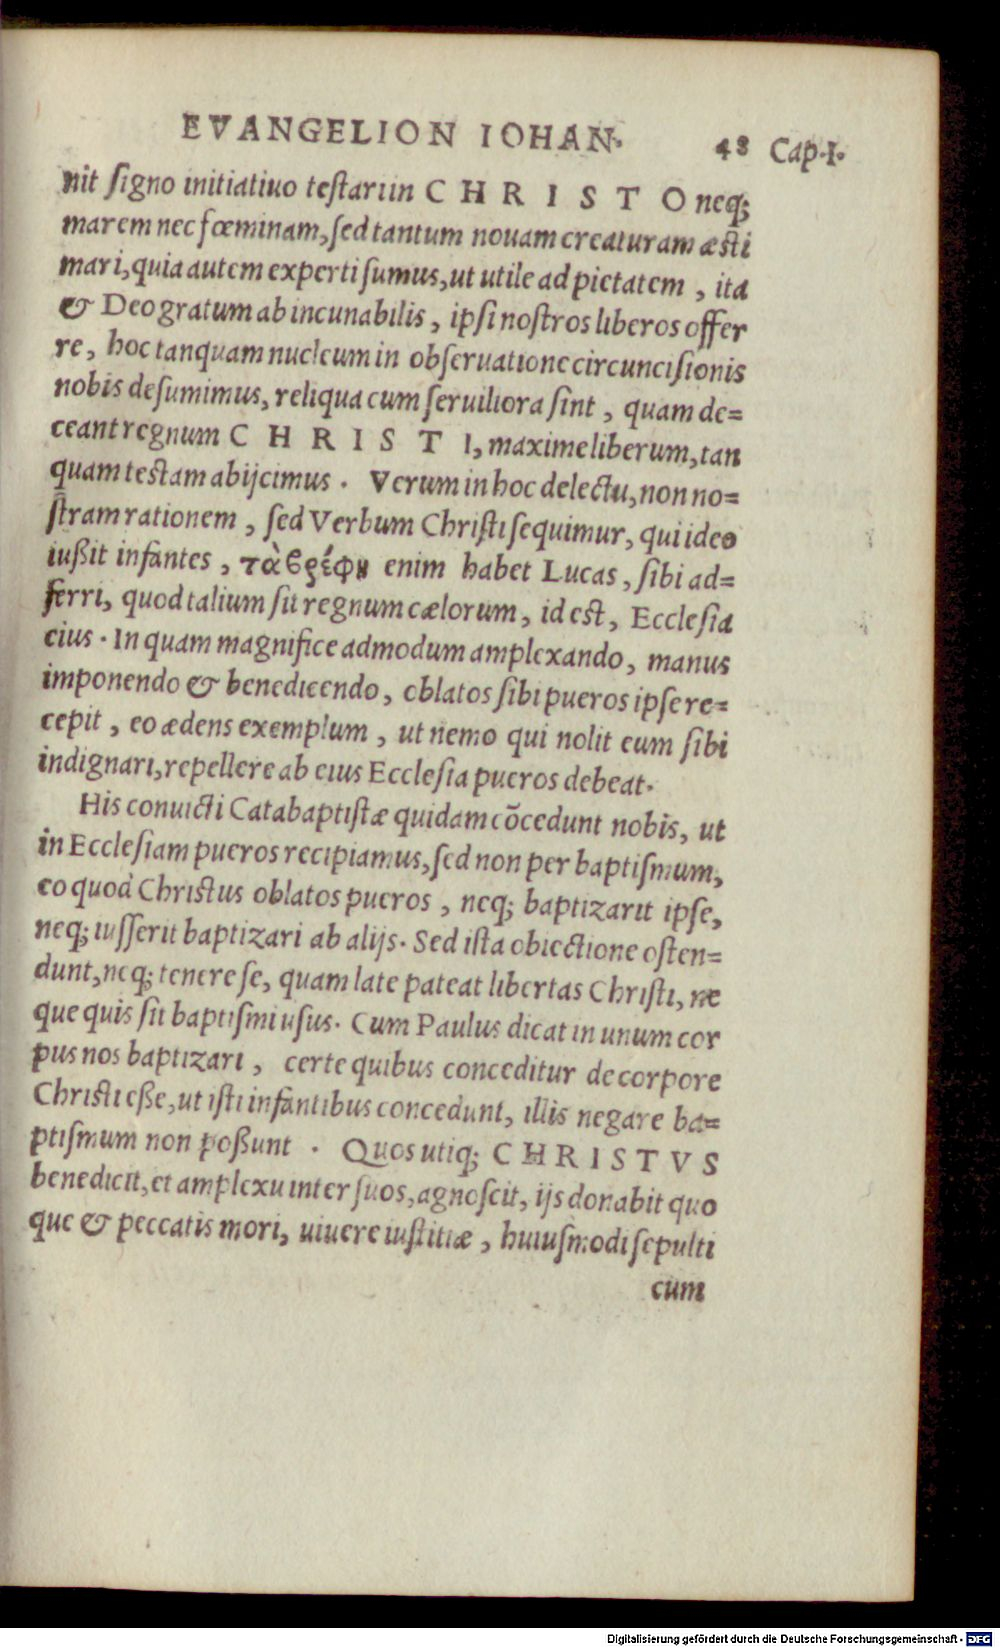 EVANGELION IOHAN. 48 Cap.I.
nit signo initiatiuo testari in CHRISTO neq;
marem nec fœminam, sed tantum nouam creaturam æsti
mari, quia autem experti sumus, ut utile ad pietatem, ita
& Deo gratum ab incunabilis, ipsi nostros liberos offer
re, hoc tanquam nucleum in obseruatione circuncisionis
nobis desumimus, reliqua cum seruiliora sint, quam de=
ceant regnum CHRISTI, maxime liberum, tan
quam testam abijcimus. Verum in hoc delectu, non no=
stram rationem, sed Verbum Christi sequimur, qui ideo
iußit infantes, τὰ βρέφη enim habet Lucas, sibi ad=
ferri, quod talium sit regnum cælorum, id est, Ecclesia
eius. In quam magnifice admodum amplexando, manus
imponendo & benedicendo, oblatos sibi pueros ipse re=
cepit, eo ædens exemplum, ut nemo qui nolit eum sibi
indignari, repellere ab eius Ecclesia pueros debeat.
His conuicti Catabaptistæ quidam cōcedunt nobis, ut
in Ecclesiam pueros recipiamus, sed non per baptismum,
eo quod Christus oblatos pueros, neq; baptizarit ipse,
neq; iusserit baptizari ab alijs. Sed ista obiectione osten=
dunt, neq; tenere se, quam late pateat libertas Christi, ne
que quis sit baptismi usus. Cum Paulus dicat in unum cor
pus nos baptizari, certe quibus conceditur de corpore
Christi eße, ut isti infantibus concedunt, illis negare ba=
ptismum non poßunt. Quos utiq; CHRISTVS
benedicit, et amplexu inter suos, agnoscit, ijs donabit quo
que & peccatis mori, uiuere iustitiæ, huiusmodi sepulti
cum
Digitalisierung gefördert durch die Deutsche Forschungsgemeinschaft - DFG